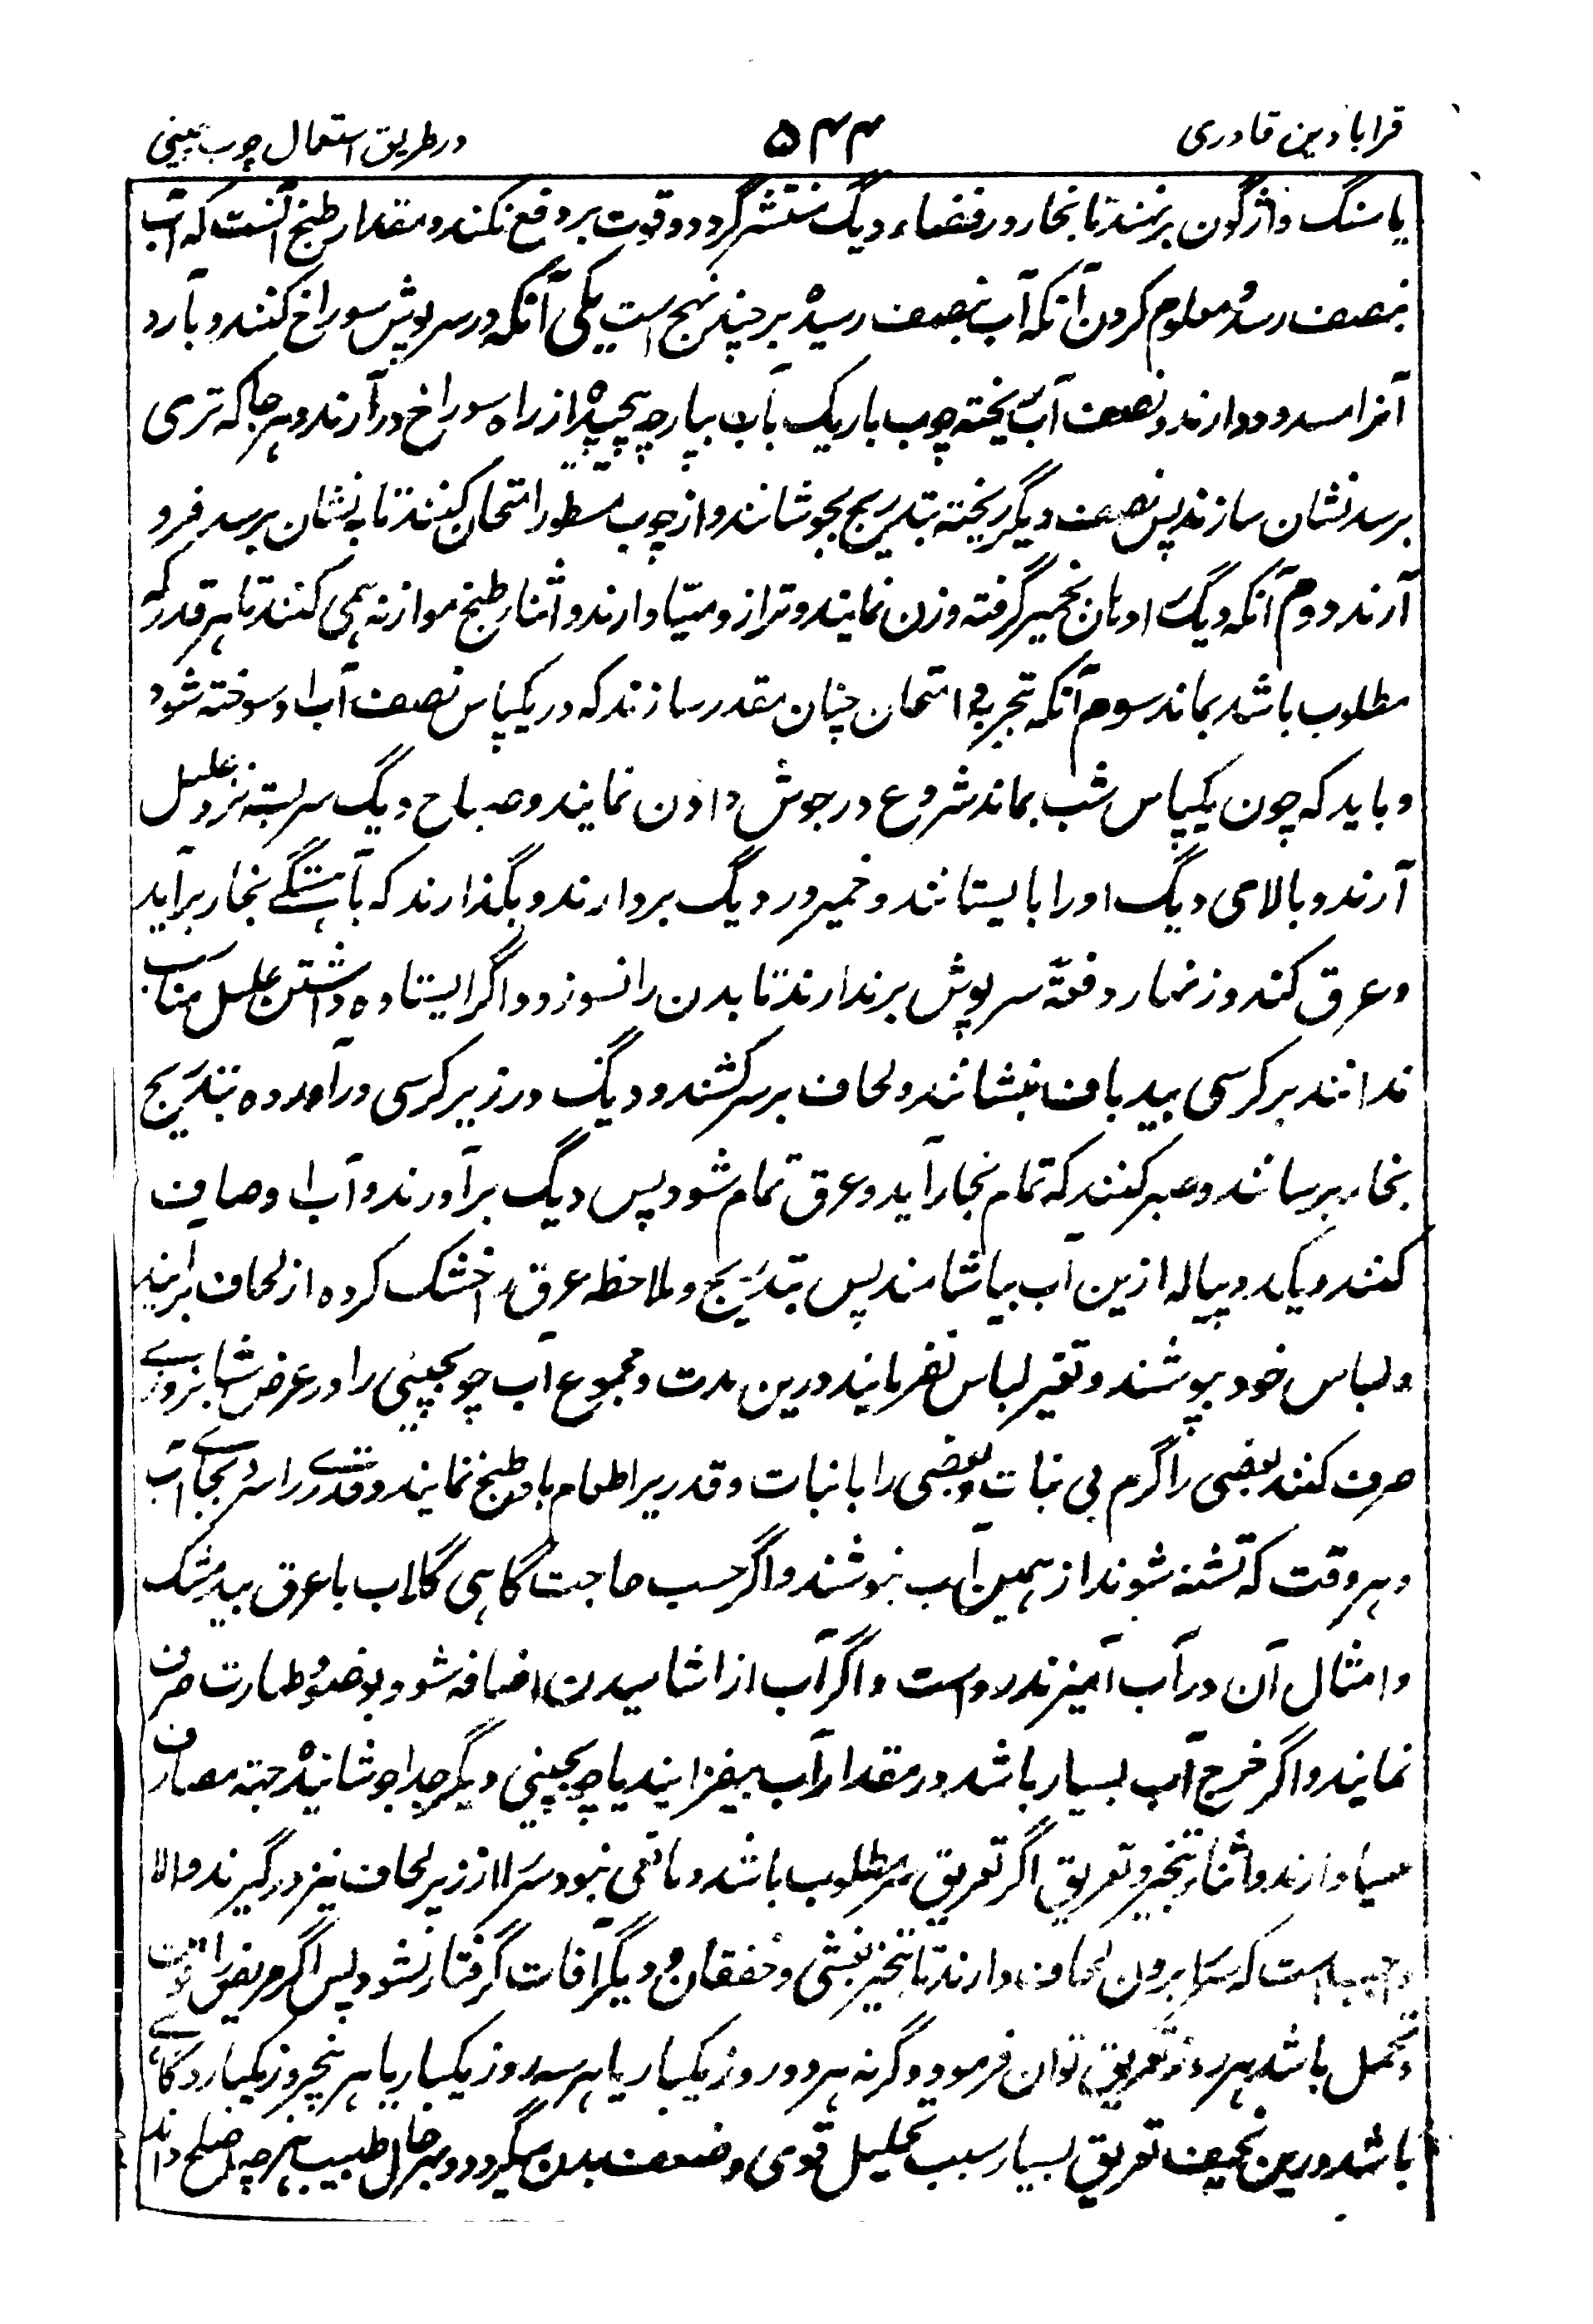 قرابادین قادری
۵۴۴
در طریق استعمال چوب چینی
یا سنگ واژگون بر نهند تا بخار در فضاء دیگ منتشر گردد و قوت بر دفع نکند و مقدار طبخ آنست که آب
بنصف رسد و معلوم کردن آنکه آب بنصف رسیده بر چند نهج است یکی آنکه در سرپوش سوراخ کنند و بآرد
آنرا مسدود دارند و نصف آب ریخته چوب باریک بآب بپارچه پیچیده از راه سوراخ در آرند و هر جا که تری
برسد نشان سازند پس نصف دیگر ریخته بتدریج بجوشانند و از چوب مسطور امتحان کنند تا به نشان برسد فرو
آرند دوم آنکه دیگ او نان خمیر گرفته وزن نمایند و ترازو مهیا دارند و اثنار طبخ موازنه همی کنند تا هر قدر که
مطلوب باشد بماند سوم آنکه تجربه و امتحان چنان مقدر سازند که در یکپاس نصف آب او سوخته شود
و باید که چون یکپاس شب بماند شروع در جوش دادن نمایند و صباح دیگ سربسته نزد علیل
آرند و بالای دیگ او را بایستانند و خمیر در دیگ بردارند و بگذارند که بآهستگی بخار برآید
و عرق کند و زنهار دفعةً سرپوش برندارند تا بدن را نسوزد و اگر ایستاده داشتن علیل مناسب
ندانند بر کرسی بید باف بنشانند و لحاف بر سر کشند و دیگ در زیر کرسی در آورده بتدریج
بخار برسانند و صبر کنند که تمام بخار آید و عرق تمام شود پس دیگ برآورند و آب او صاف
کنند و یک دو پیاله ازین آب بیاشامند پس بتدریج و ملاحظه عرق را خشک کرده از لحاف برآیند
و لباس خود بپوشند و تغیر لباس نفرمایند درین مدت و مجموع آب چوبچینی را در عرض شبانروزے
صرف کنند بعضی را گرم بی نبات و بعضی را با نبات و قدریرا طعام باو طبخ نمایند و قدرے را سرد بجاے آب
و هر وقت که تشنه شوند از همین آب بنوشند و اگر حسب حاجت گاهی گلاب با عرق بیدمشک
و امثال آن در آب آمیزند رواست و اگر آب از اشامیدن اضافه شود بوضو و طهارت صرف
نمایند و اگر خرج آب بسیار باشد در مقدار آب بیفزایند یا چوبچینی دیگر جدا جوشانیده جهته مصارف
مهیا دارند و اثنار تبخیر و تعریق اگر تعریق سر مطلوب باشد و مانعی نبود سر را از زیر لحاف نیز در گیرند و الا
واجب است که سر را برون لحاف دارند تا تبخیر بغشی و خفقان و دیگر آفات گرفتار نشود پس اگر مریض را قوت
و تحمل باشد هر روز تعریق توان فرمود و گرنه هر دو روز یکبار یا هر سه روز یکبار یا هر پنجروز یکبار و گاهے
باشد درین نحیف تعریق بسیار سبب تحلیل قوی و ضعف بدن میگردد و بهر حال طبیب هر چه اصلح داند